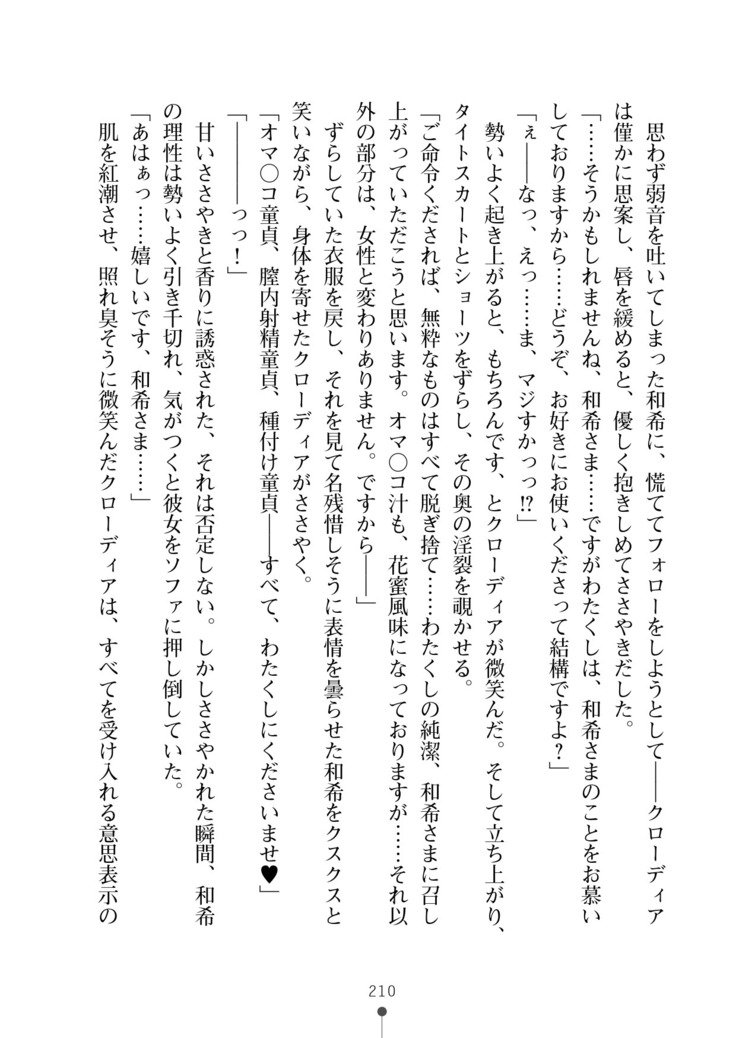 思わず弱音を吐いてしまった和希に、慌ててフォローをしようとして――クローディア
は僅かに思案し、唇を緩めると、優しく抱きしめてささやきだした。
「……そうかもしれませんね、和希さま……ですがわたくしは、和希さまのことをお慕い
しておりますから……どうぞ、お好きにお使いくださって結構ですよ？」
「ぇ――なっ、えっ……ま、マジすかっっ!?」
　勢いよく起き上がると、もちろんです、とクローディアが微笑んだ。そして立ち上がり、
タイトスカートとショーツをずらし、その奥の淫裂を覗かせる。
「ご命令くだされば、無粋なものはすべて脱ぎ捨て……わたくしの純潔、和希さまに召し
上がっていただこうと思います。オマ〇コ汁も、花蜜風味になっておりますが……それ以
外の部分は、女性と変わりありません。ですから――」
　ずらしていた衣服を戻し、それを見て名残惜しそうに表情を曇らせた和希をクスクスと
笑いながら、身体を寄せたクローディアがささやく。
「オマ〇コ童貞、膣内射精童貞、種付け童貞――すべて、わたくしにくださいませ♥」
「――――っっ！」
　甘いささやきと香りに誘惑された、それは否定しない。しかしささやかれた瞬間、和希
の理性は勢いよく引き千切れ、気がつくと彼女をソファに押し倒していた。
「あはぁっ……嬉しいです、和希さま……」
　肌を紅潮させ、照れ臭そうに微笑んだクローディアは、すべてを受け入れる意思表示の
210